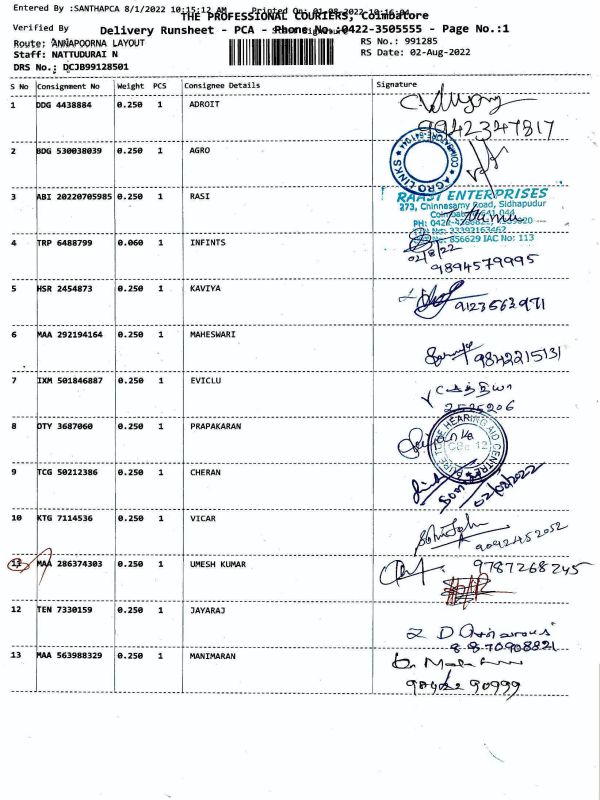 Entered By :SANTHAPCA 8/1/2022 10:15:12 AM Printed On: 01-08-2022 10:16:04
THE PROFESSIONAL COURIERS, Coimbatore
Verified By
Delivery Runsheet - PCA - Phone No.:0422-3505555 - Page No.:1
Route: ANNAPOORNA LAYOUT
RS No.: 991285
Staff: NATTUDURAI N
RS Date: 02-Aug-2022
DRS No.: DCJB99128501
S No Consignment No Weight PCS Consignee Details Signature
1 DDG 4438884 0.250 1 ADROIT
9942347817
2 BDG 530038039 0.250 1 AGRO
AGRO LINKS COIMBATORE-641044
3 ABI 20220705985 0.250 1 RASI
RAASI ENTERPRISES
273, Chinnasamy Road, Sidhapudur
Coimbatore-641 044
4 TRP 6488799 0.060 1 INFINTS
856629 IAC No: 113
02/8/22
9894579995
5 HSR 2454873 0.250 1 KAVIYA
9123563971
6 MAA 292194164 0.250 1 MAHESWARI
9842215131
7 IXM 501846887 0.250 1 EVICLU
2525206
8 OTY 3687060 0.250 1 PRAPAKARAN
HEARING AID CENTRE
CBE 12
9 TCG 50212386 0.250 1 CHERAN
02/08/2022
10 KTG 7114536 0.250 1 VICAR
9092452052
11 MAA 286374303 0.250 1 UMESH KUMAR
9787268245
12 TEN 7330159 0.250 1 JAYARAJ
8870908821
13 MAA 563988329 0.250 1 MANIMARAN